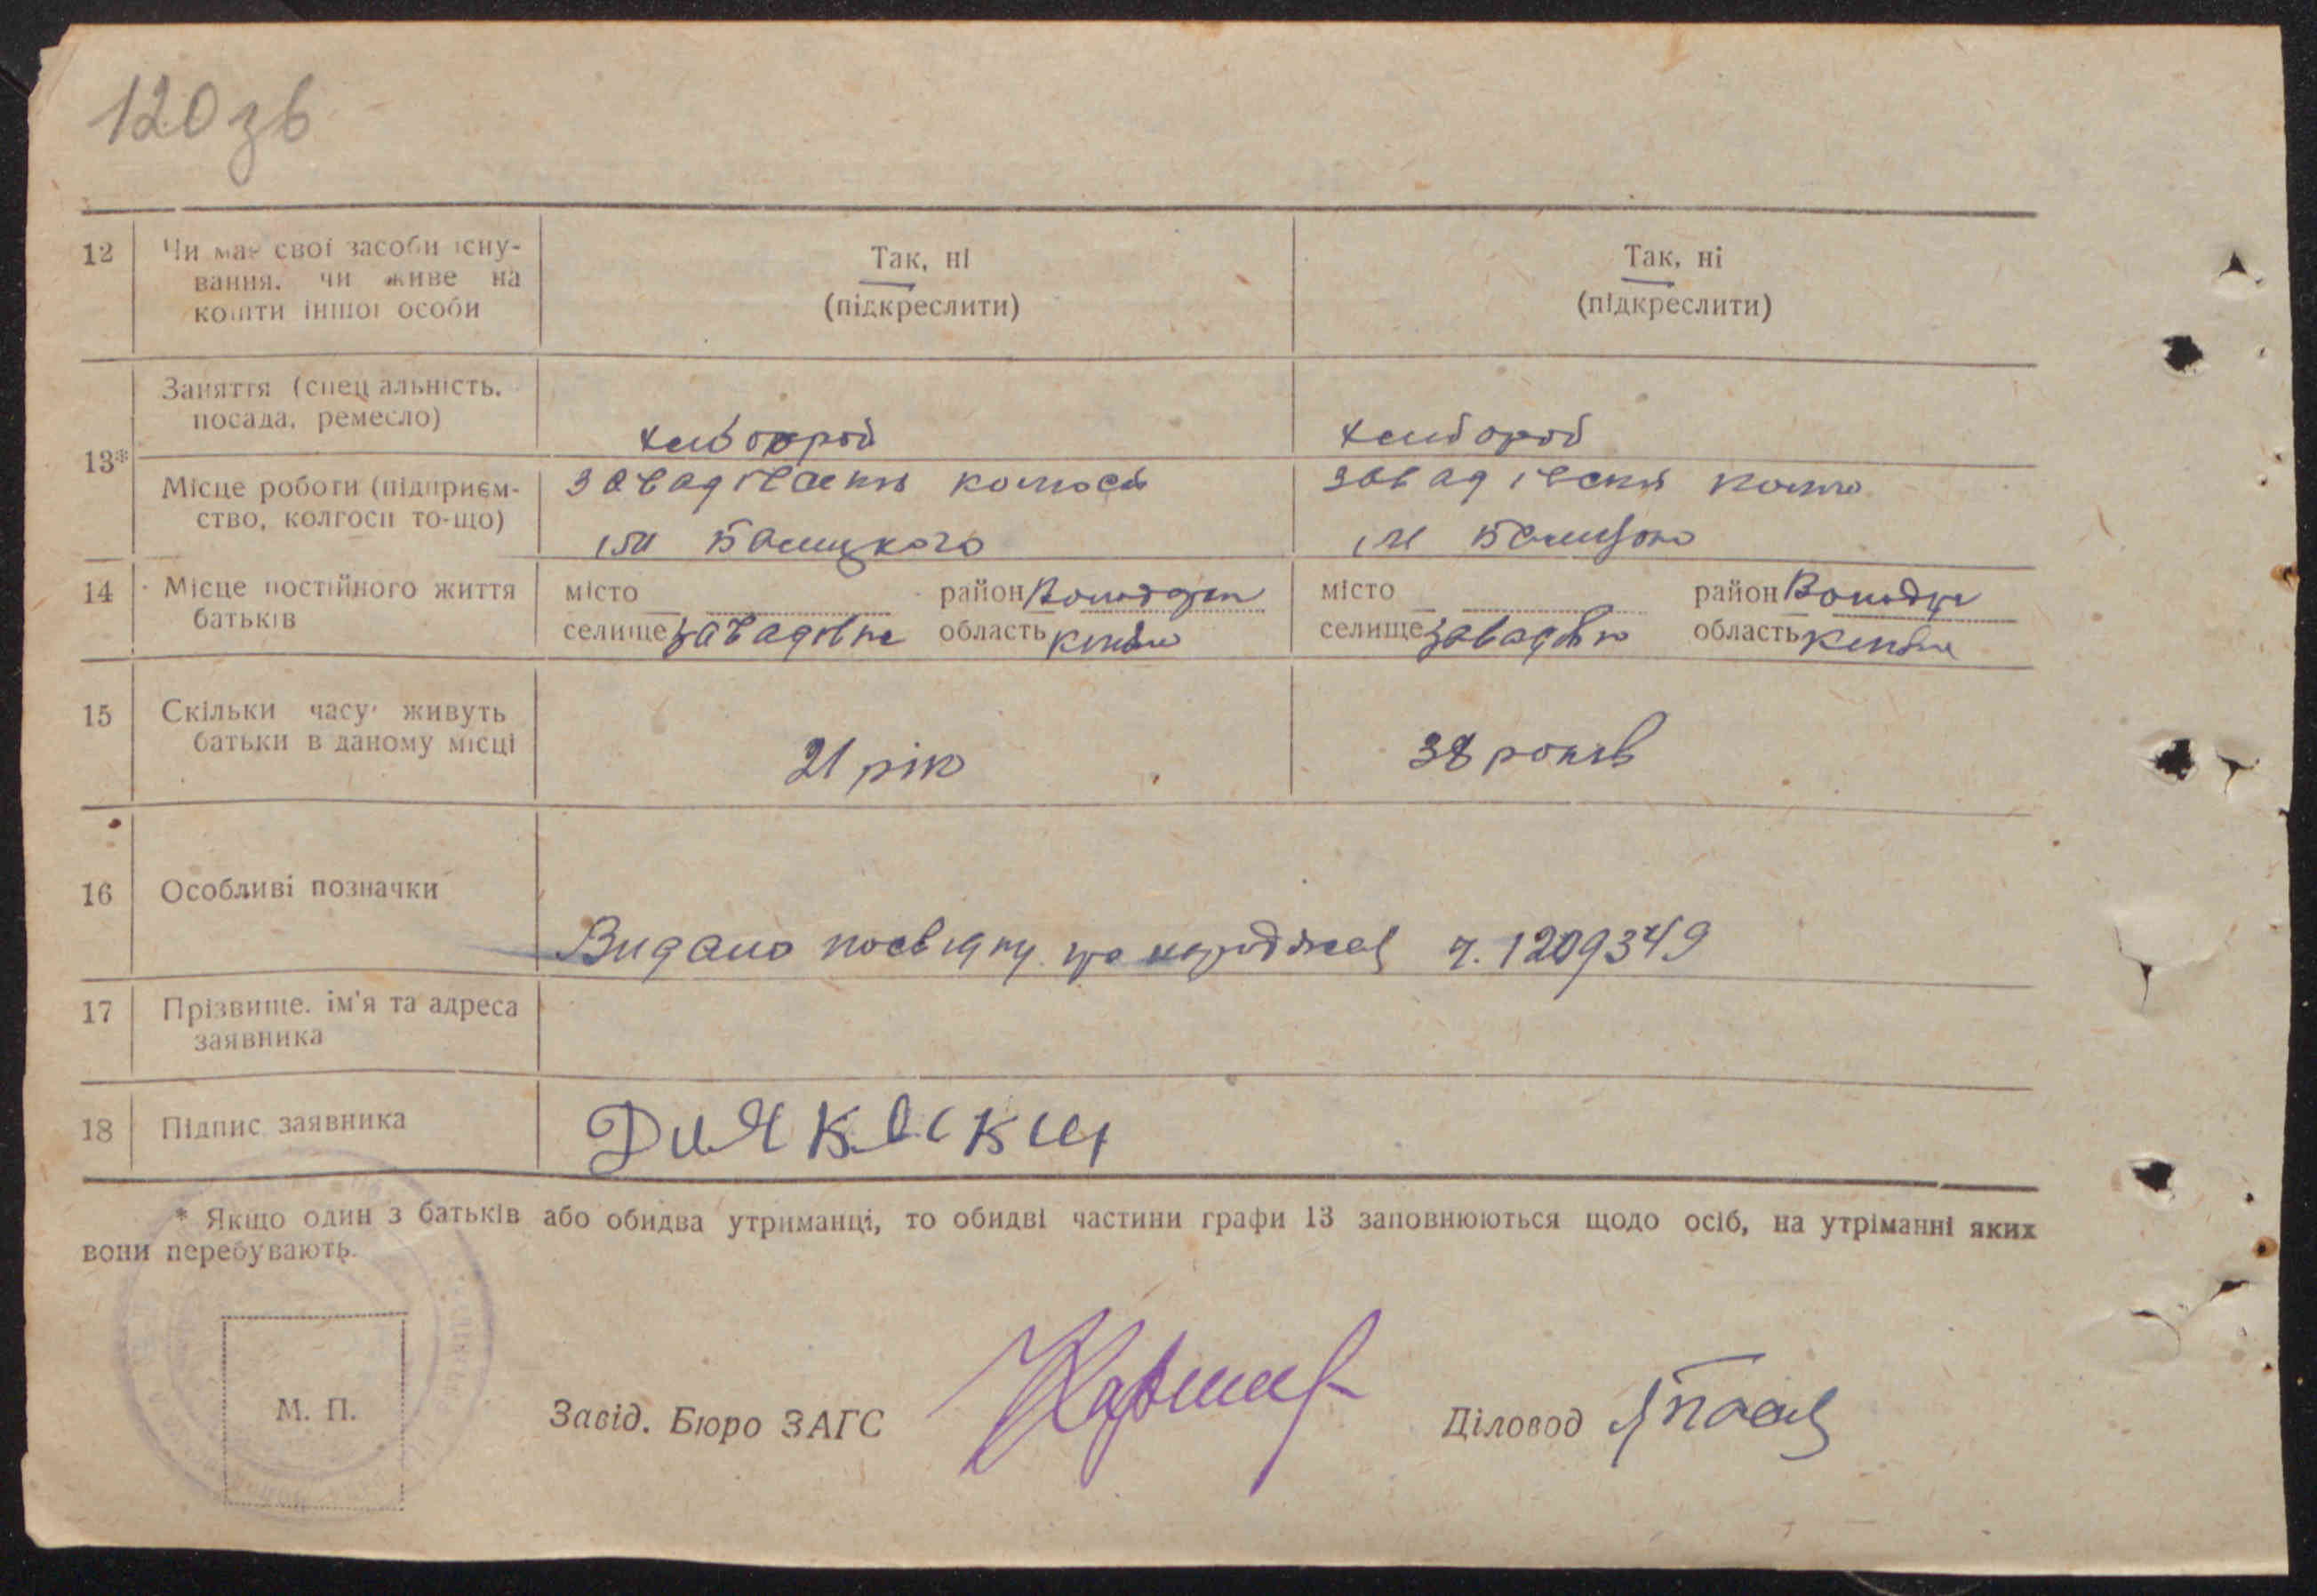 120 зв
12 Чи має свої засоби існу-
вання, чи живе на
кошти іншої особи
Так, ні
(підкреслити)
Так, ні
(підкреслити)
13* Заняття (спеціальність,
посада, ремесло)
хлібороб
хлібороб
Місце роботи (підприєм-
ство, колгосп то-що)
завадівський колгосп
ім Балицкого
14 Місце постійного життя
батьків
місто район Володар
селище завадівка область Київ
місто район Володар
селище завадівка область Київ
15 Скільки часу живуть
батьки в даному місці
21 рік
38 років
16 Особливі позначки
Видано посвідку про народжен ч. 1209349
17 Прізвище, ім'я та адреса
заявника
18 Підпис заявника
* Якщо один з батьків або обидва утриманці, то обидві частини графи 13 заповнюються щодо осіб, на утріманні яких
вони перебувають.
М. П.
Завід. Бюро ЗАГС
Діловод